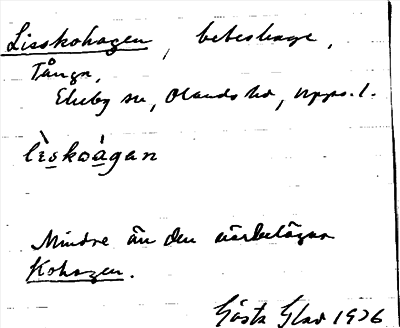 Lisskohagen, beteshage,
Tånga,
Ekeby sn, Olands hd, Upps. l.
lìskoàgan
Mindre än den närbelägna
Kohagen.
Gösta Glad 1926